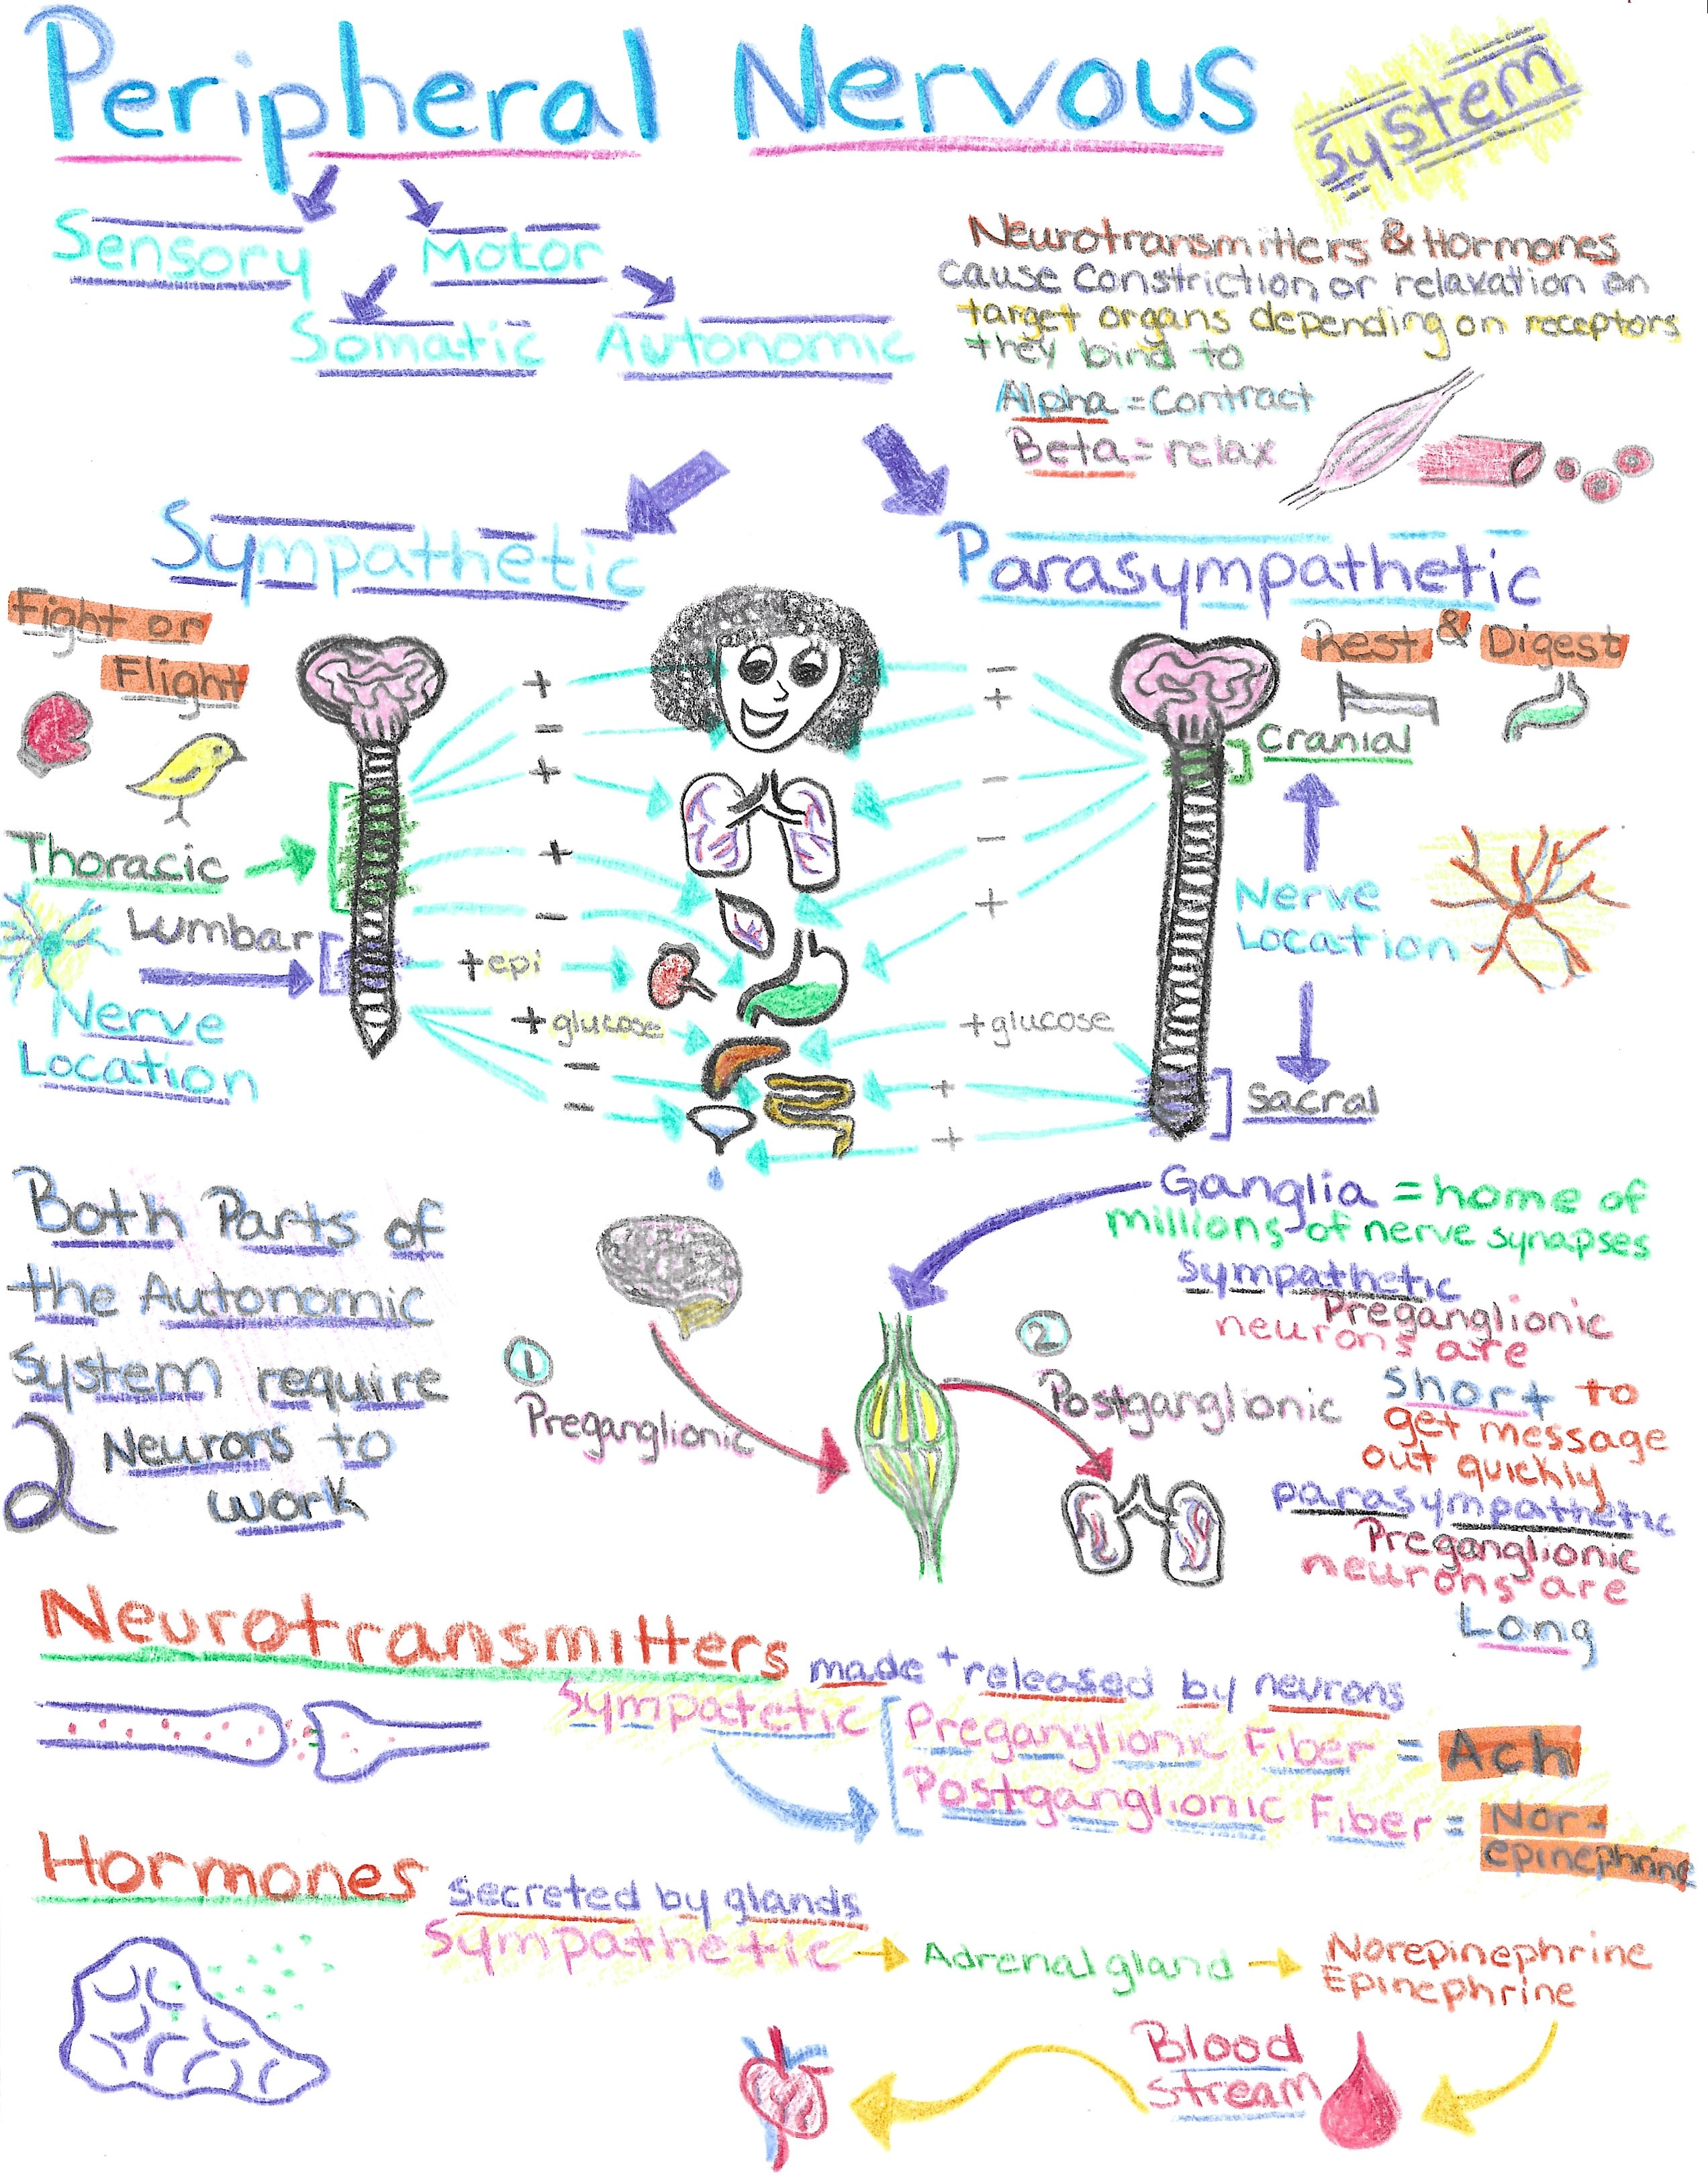 Peripheral Nervous
System
Sensory
Motor
Somatic
Autonomic
Neurotransmitters & Hormones
cause constriction or relaxation on
target organs depending on receptors
they bind to
Alpha = Contract
Beta = relax
Sympathetic
Parasympathetic
Fight or
Flight
Rest & Digest
Cranial
Thoracic
Lumbar
Nerve
Location
Nerve
Location
Sacral
+
-
+
+
-
+epi
+glucose
-
-
-
+
-
-
+
+glucose
+
+
Both Parts of
the Autonomic
System require
2 Neurons to
work
Ganglia = home of
millions of nerve synapses
Sympathetic
Preganglionic
neurons are
short to
get message
out quickly
parasympathetic
Preganglionic
neurons are
Long
1
Preganglionic
2
Postganglionic
Neurotransmitters made + released by neurons
Sympatetic
Preganglionic Fiber = Ach
Postganglionic Fiber = Nor-
epinephrine
Hormones secreted by glands
Sympathetic
Adrenal gland
Norepinephrine
Epinephrine
Blood
stream